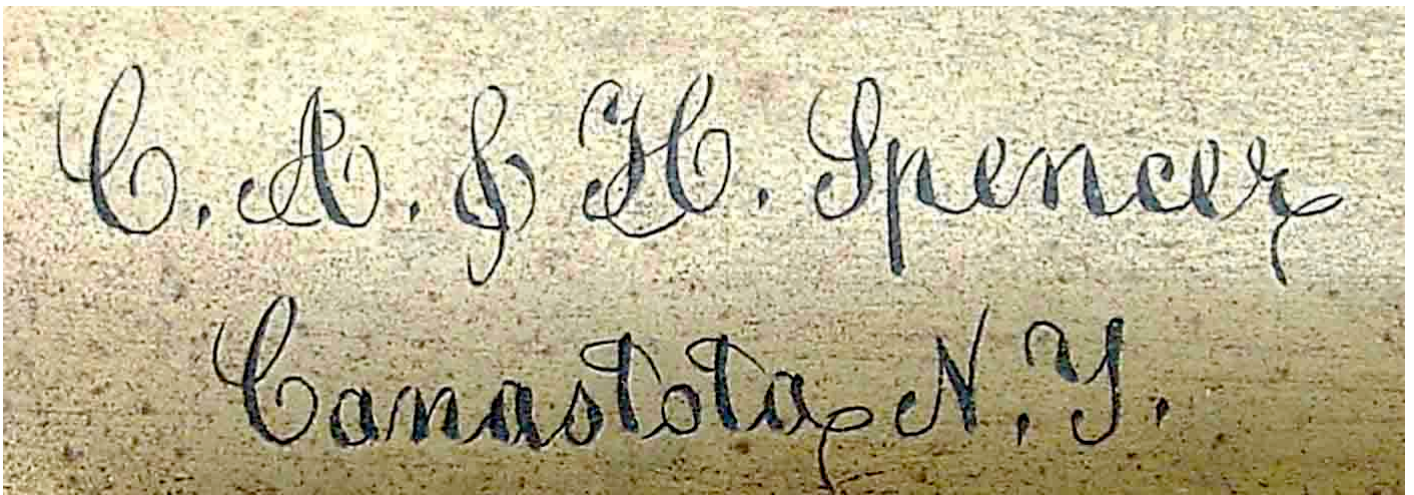 C. A. & H. Spencer
Canastota N.Y.